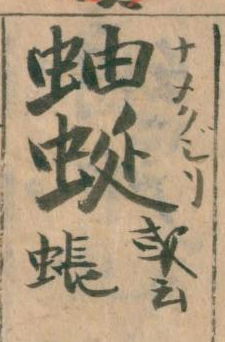 ナメクジリ
蚰蜒
或云
蜄